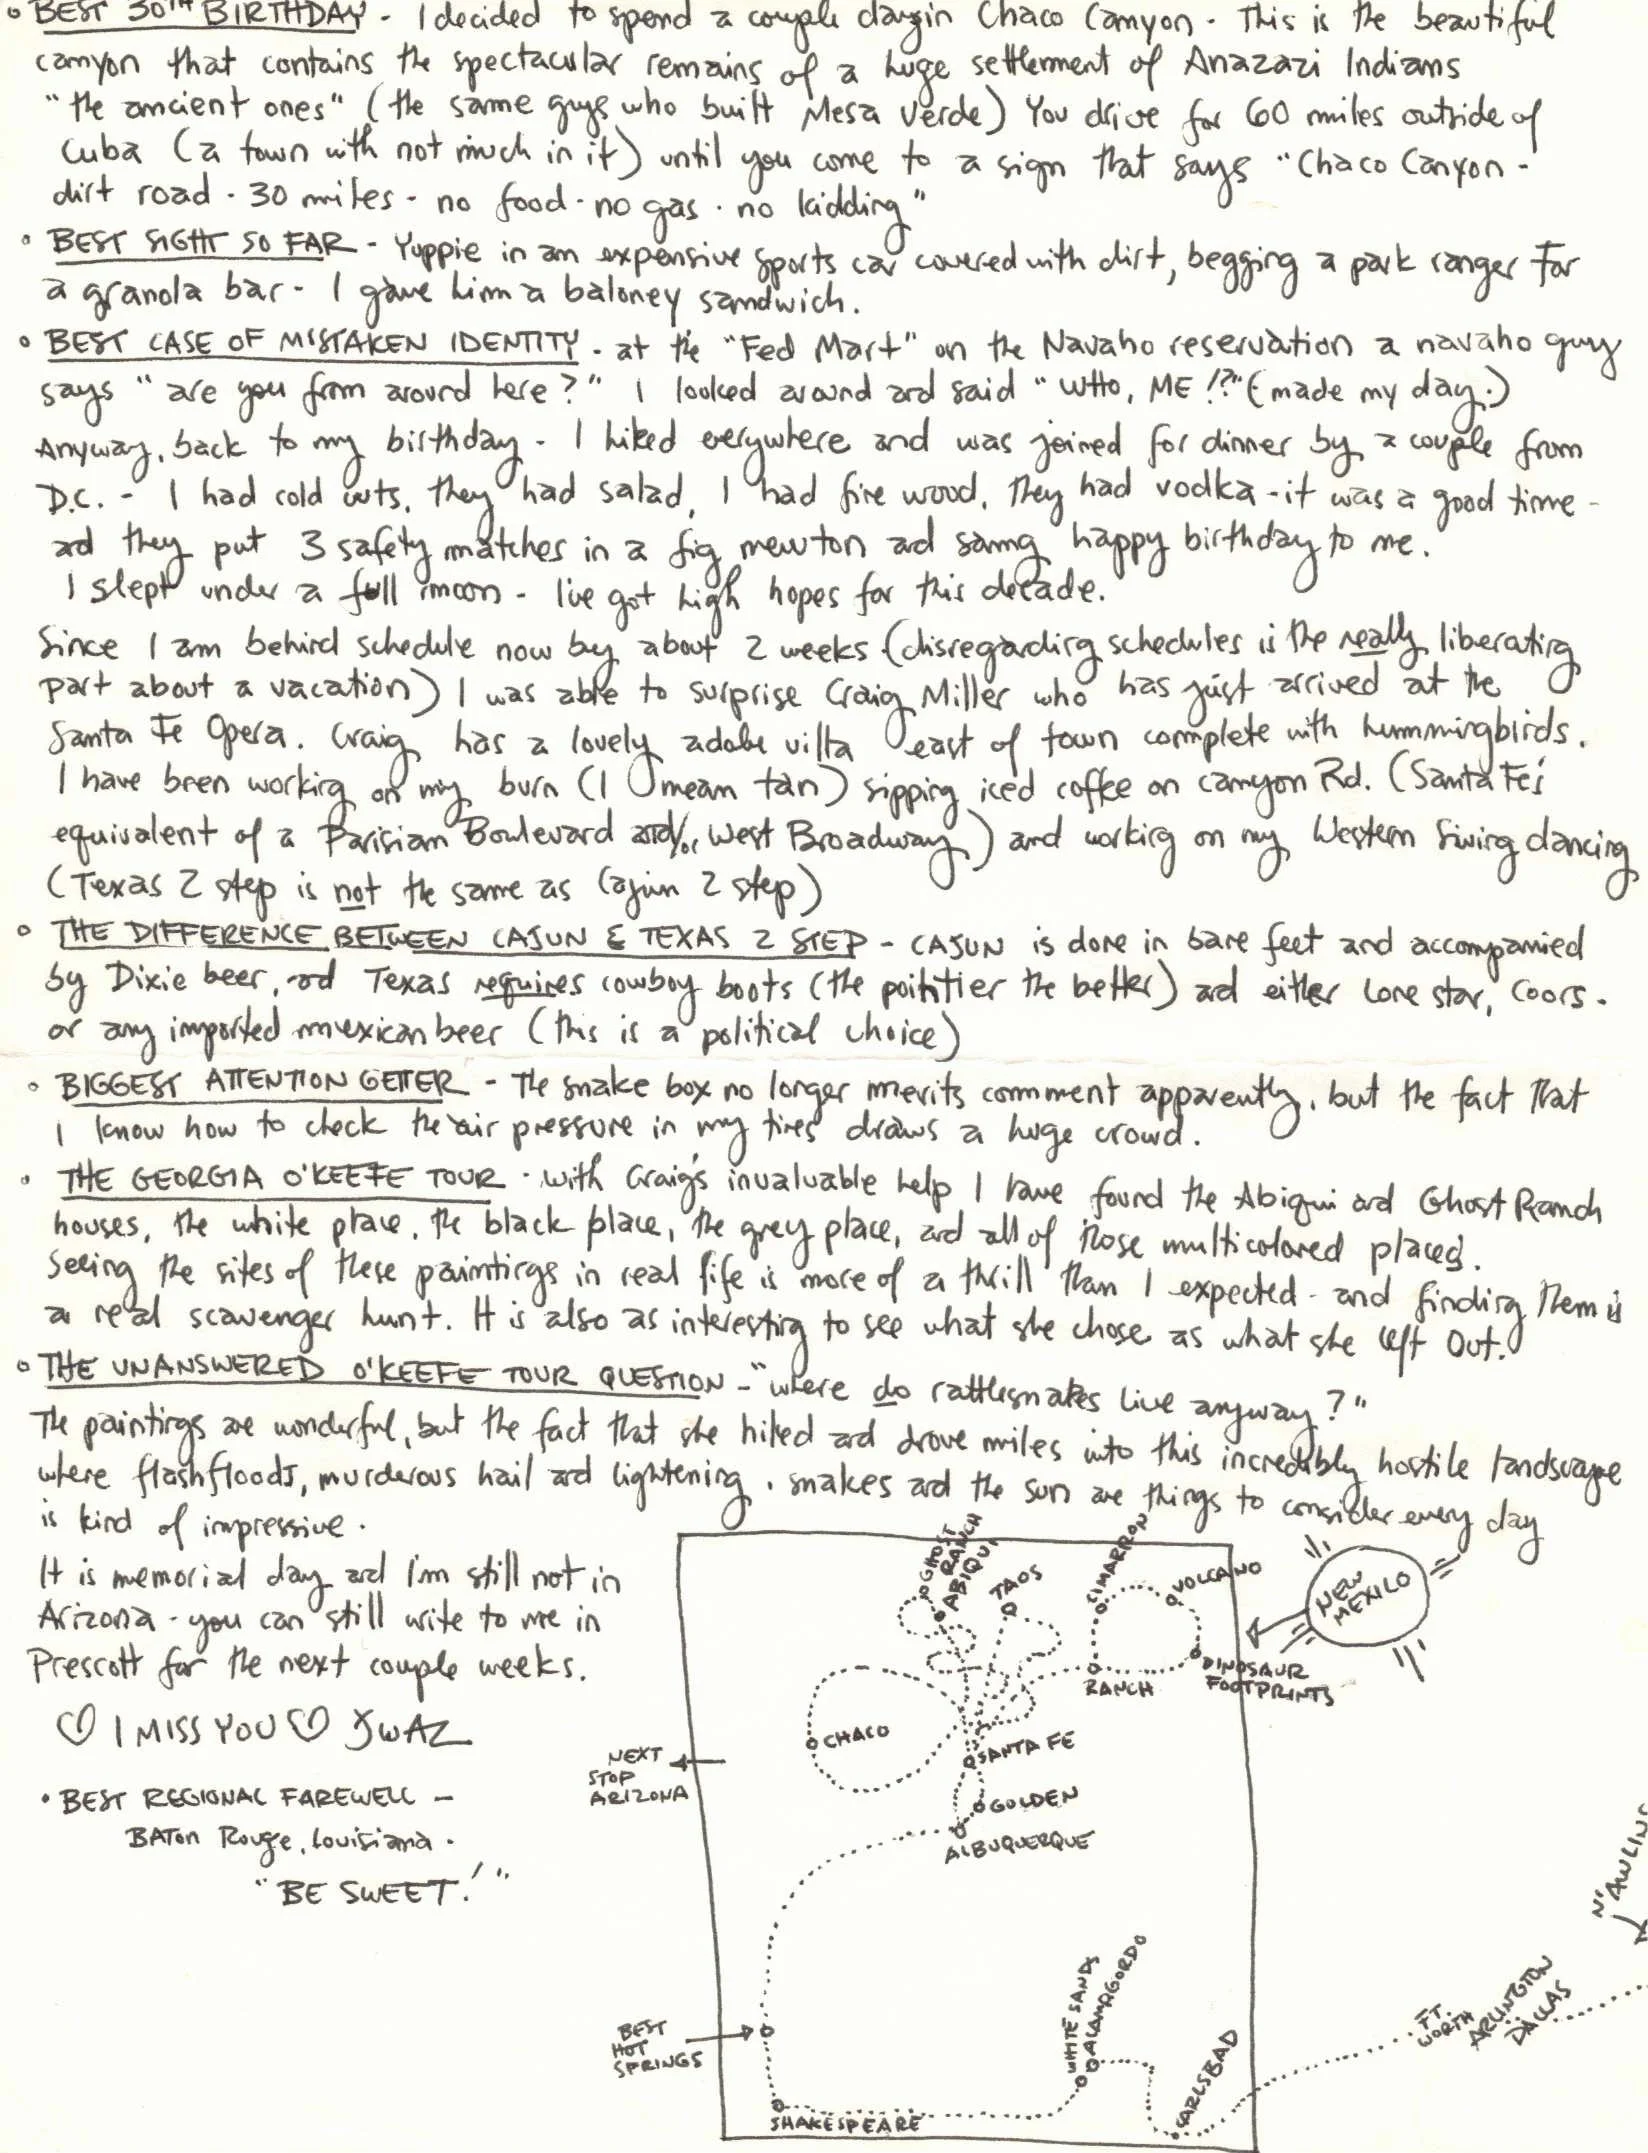 • BEST 30TH BIRTHDAY - I decided to spend a couple days in Chaco Canyon. This is the beautiful
canyon that contains the spectacular remains of a huge settlement of Anazazi Indians
"the ancient ones" (the same guys who built Mesa Verde) You drive for 60 miles outside of
Cuba (a town with not much in it) until you come to a sign that says "Chaco Canyon -
dirt road - 30 miles - no food - no gas - no kidding"
• BEST SIGHT SO FAR - Yuppie in an expensive sports car covered with dirt, begging a park ranger for
a granola bar - I gave him a baloney sandwich.
• BEST CASE OF MISTAKEN IDENTITY - at the "Fed Mart" on the Navaho reservation a navaho guy
says "are you from around here?" I looked around and said "WHO, ME!?" (made my day.)
Anyway, back to my birthday - I hiked everywhere and was joined for dinner by a couple from
D.C. - I had cold cuts, they had salad, I had fire wood, they had vodka - it was a good time -
and they put 3 safety matches in a fig newton and sang happy birthday to me.
I slept under a full moon - I've got high hopes for this decade.
Since I am behind schedule now by about 2 weeks (disregarding schedules is the really liberating
part about a vacation) I was able to surprise Craig Miller who has just arrived at the
Santa Fe Opera. Craig has a lovely adobe villa east of town complete with hummingbirds.
I have been working on my burn (I mean tan) sipping iced coffee on canyon Rd. (Santa Fe's
equivalent of a Parisian Boulevard and/or West Broadway) and working on my Western Swing dancing
(Texas 2 step is not the same as Cajun 2 step)
• THE DIFFERENCE BETWEEN CAJUN & TEXAS 2 STEP - CAJUN is done in bare feet and accompanied
by Dixie beer, and Texas requires cowboy boots (the pointier the better) and either Lone Star, Coors -
or any imported mexican beer (this is a political choice)
• BIGGEST ATTENTION GETTER - The snake box no longer merits comment apparently, but the fact that
I know how to check the air pressure in my tires draws a huge crowd.
• THE GEORGIA O'KEEFE TOUR - with Craig's invaluable help I have found the Abiqui and Ghost Ranch
houses, the white place, the black place, the grey place, and all of those multicolored places.
Seeing the sites of these paintings in real life is more of a thrill than I expected - and finding them is
a real scavenger hunt. It is also as interesting to see what she chose as what she left out.
• THE UNANSWERED O'KEEFE TOUR QUESTION - "where do rattlesnakes live anyway?"
The paintings are wonderful, but the fact that she hiked and drove miles into this incredibly hostile landscape
where flashfloods, murderous hail and lightening, snakes and the sun are things to consider every day
is kind of impressive.
It is memorial day and I'm still not in
Arizona - you can still write to me in
Prescott for the next couple weeks.
♡ I MISS YOU ♡ SWAZ
• BEST REGIONAL FAREWELL -
BATon Rouge, Louisiana -
"BE SWEET!"
GHOST RANCH
ABIQUI
TAOS
CIMARRON
VOLCANO
NEW MEXICO
DINOSAUR FOOTPRINTS
RANCH
CHACO
SANTA FE
NEXT STOP ARIZONA
GOLDEN
ALBUQUERQUE
N'AWLINS
WHITE SANDS
ALAMAGORDO
BEST HOT SPRINGS
CARLSBAD
FT. WORTH
ARLINGTON
DALLAS
SHAKESPEARE